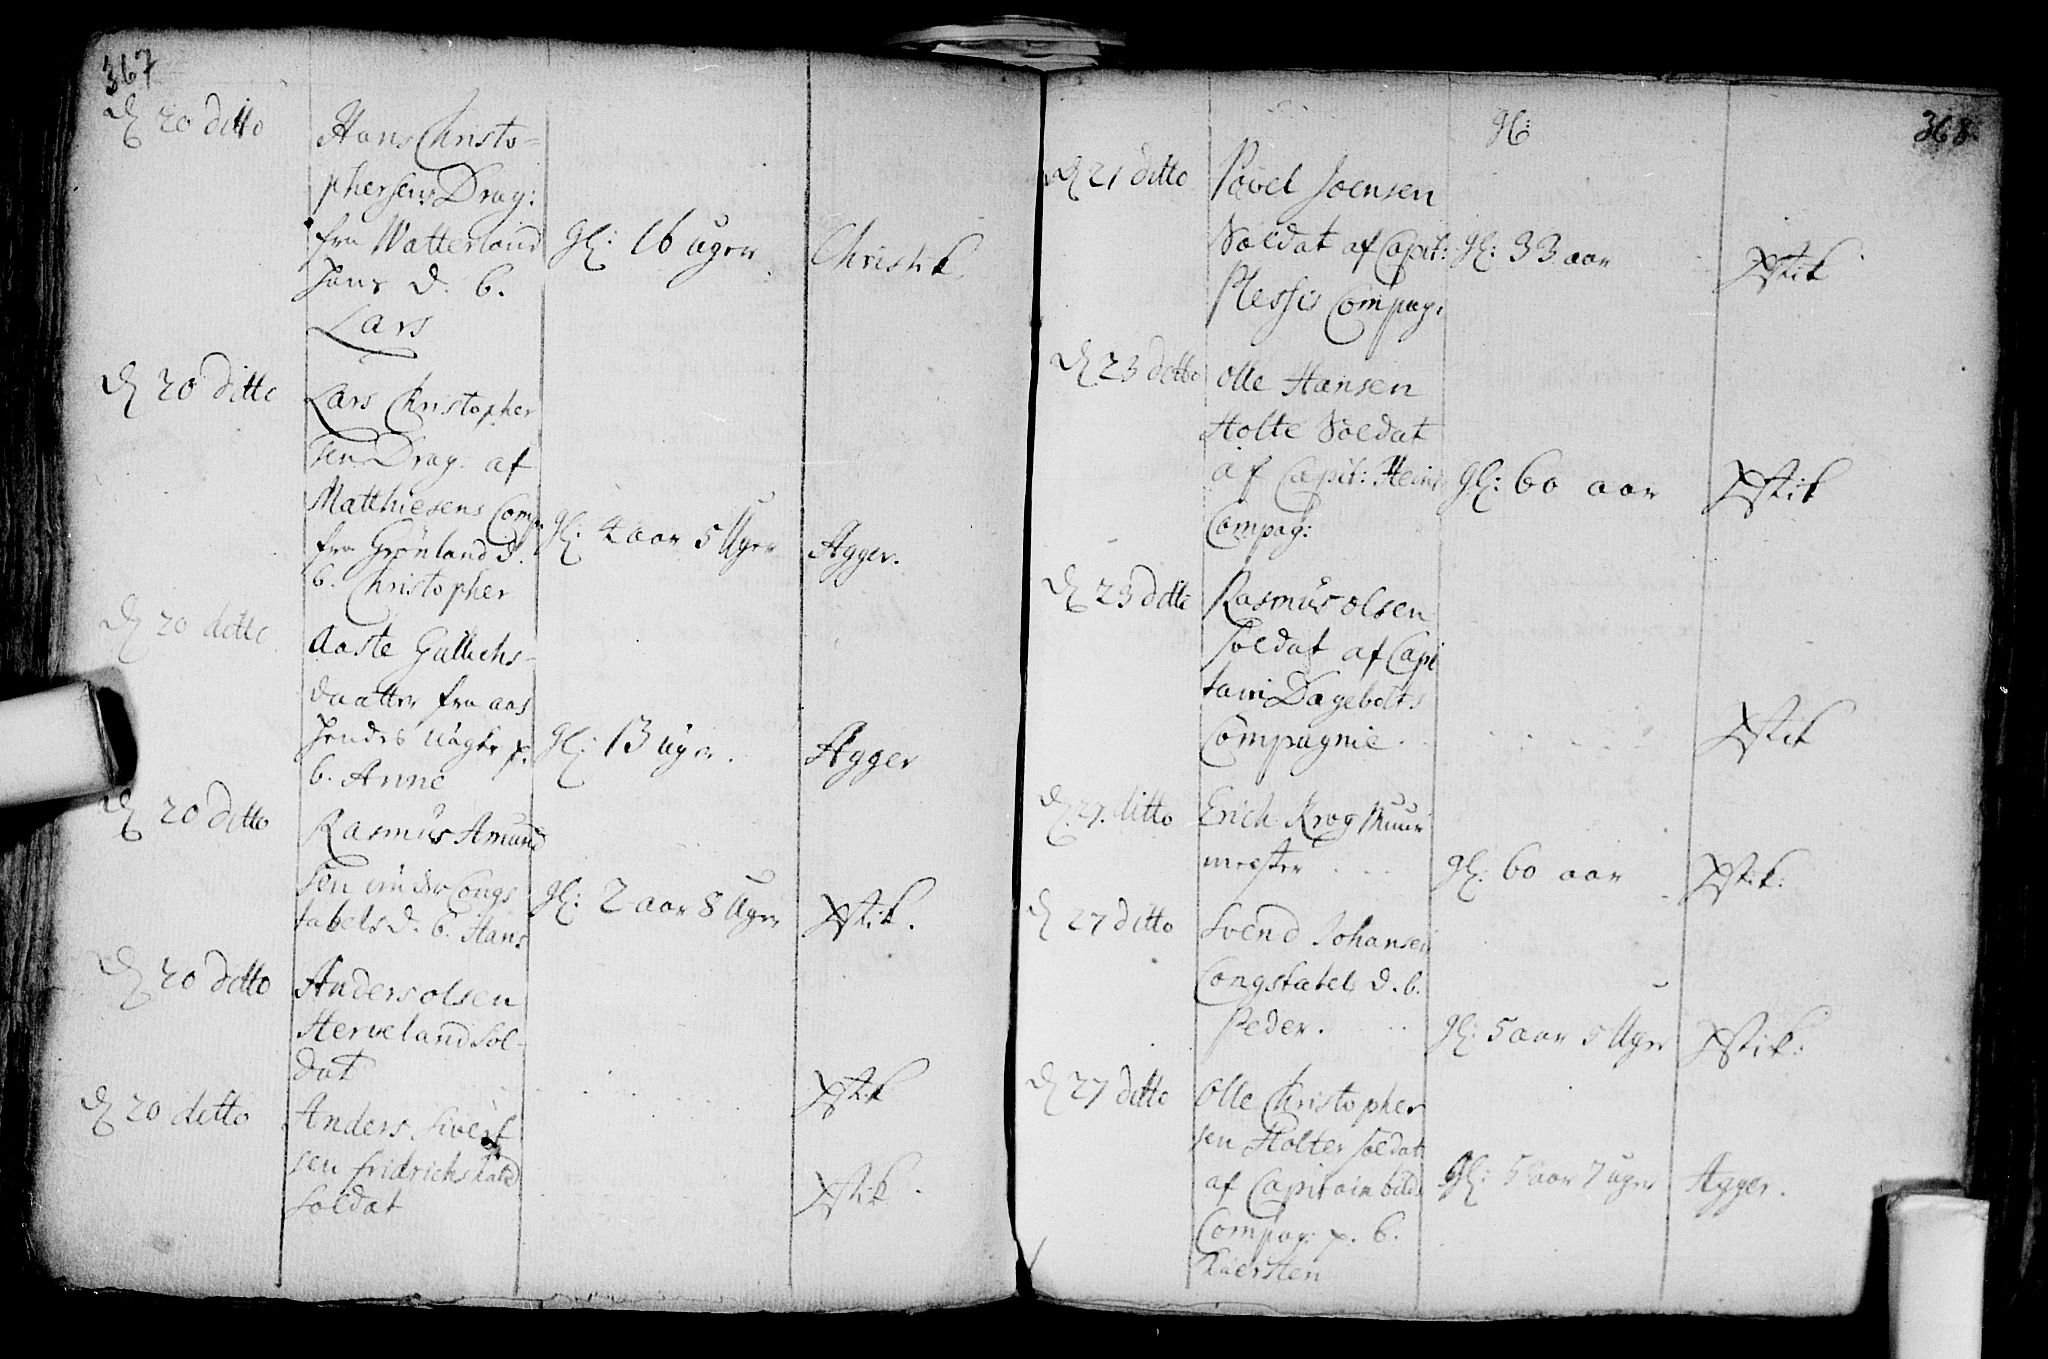 367
d 20 ditto
Hans Christo=
phersens Drag:
fra Watterland
hans d. b.
Lars
gl: 16 uger
Christ k.
d 20 ditto
Lars Christopher
sen Drag: af
Matthiesens Comp:
fra Grønland d.
b. Christopher
gl: 4 aar 5 Uger
Agger.
d 20 ditto
Aaste Gullichs-
daatter fra aas
hendes uægte p.
b. Anne
gl: 13 uger.
Agger
d 20 ditto
Rasmus Amund
sen under Congs
tabels d. b. Hans
gl: 2 aar 8 Uger
Xstik.
d 20 ditto
Anders olsen
Herveland Sol-
dat
Xstik
d 20 ditto
Anders Sivert
sen fridrichshald
Soldat
Xstik.
368
gl:
d 21 ditto
Povel Joensen
Soldat af Capit:
Plessis Compag:
gl: 33 aar
Xstik
d 23 ditto
Olle Hansen
Holte Soldat
af Capit: Heins
Compag:
gl: 60 aar
Xstik
d 23 ditto
Rasmus olsen
Soldat af Capi
tain Dagebolts
Compagnie.
Xstik
d 27. ditto
Erich Krog Muur
mester
gl: 60 aar
Xstik.
d 27 ditto
Svend Johansen
Congstabel d. b.
Peder.
gl: 5 aar 5 Uger
Xstik:
d 27 ditto
Olle Christopher
sen Holter Soldat
af Capitain bilds
Compag: p. b.
Kiersten
gl: 5 aar 7 uger
Agger.